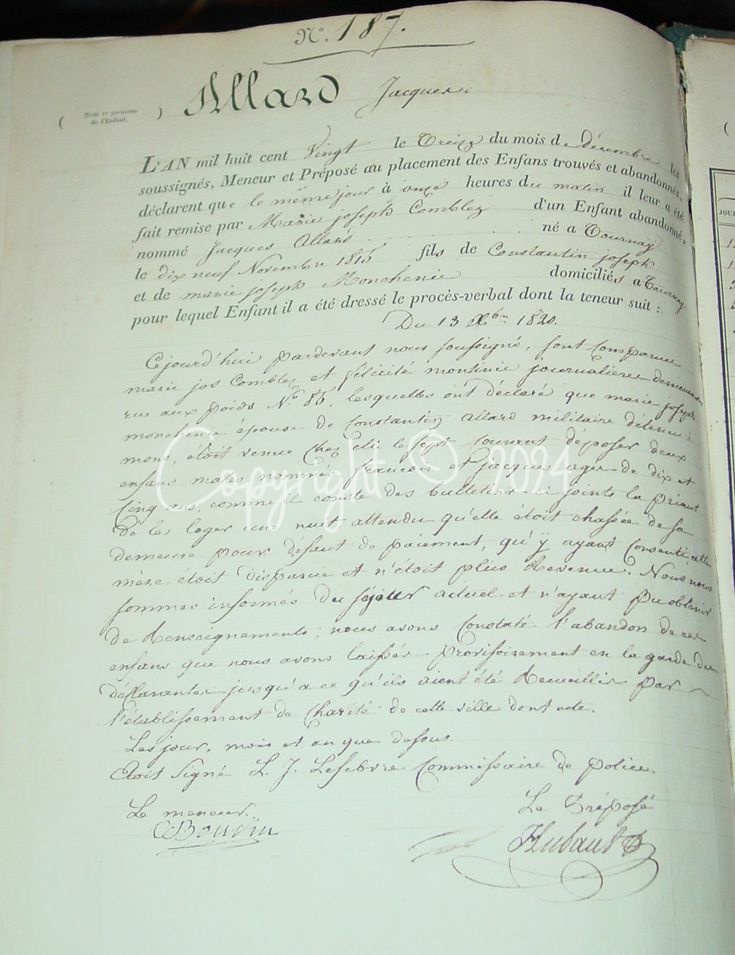 N.° 187.
( Nom et prénoms de l'Enfant. ) Allard Jacques
L'AN mil huit cent Vingt le Treize du mois de décembre les
soussignés, Meneur et Préposé au placement des Enfans trouvés et abandonnés,
déclarent que le même jour à onze heures du matin il leur a été
fait remise par Marie joseph Comblez d'un Enfant abandonné,
nommé Jacques Allard né a Tournay
le dix neuf Novembre 1815 fils de Constantin joseph
et de marie joseph Monchenie domiciliés a Tournay
pour lequel Enfant il a été dressé le procès-verbal dont la teneur suit :
Du 13 Xbre 1820.
Cejourd'hui pardevant nous soussigné, sont comparues
marie jos Comblez et félicité journalières demeurant
rue aux poids N.° 85, lesquelles ont déclaré que marie joseph
monchenie épouse de Constantin allard militaire détenu à
mons, étoit venue chez elle le sept courant déposer deux
enfans mâles nommés francois et jacques agés de dix et
cinq ans, comme il conste des bulletins ci joints la priant
de les loger un nuit attendu qu'elle étoit chassée de sa
demeure pour défaut de paiement, qu'y ayant consenti cette
mère étoit disparue et n'étoit plus revenue. Nous nous
sommes informés du séjour actuel et n'ayant pu obtenir
de Renseignements, nous avons constaté l'abandon de ces
enfans que nous avons laissés provisoirement en la garde des
déclarantes jusqu'a ce qu'ils aient été Recueillis par
l'établissement de charité de cette ville dont acte.
Les jour, mois et an que dessus
étoit signé L. J. Lefebvre Commissaire de police.
Le meneur. Le Préposé
Hubaut
Copyright © 2021